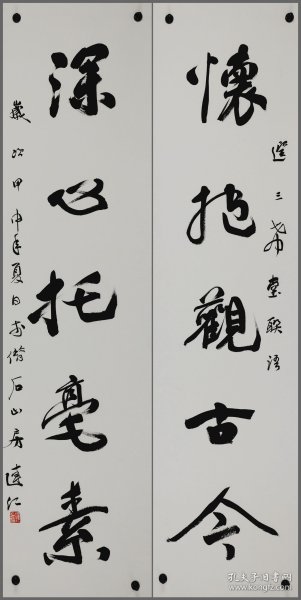 懷抱觀古今
選三希堂聯語
深心托毫素
歲次甲申年夏日於石山房
孔夫子旧书网
www.kongfz.com